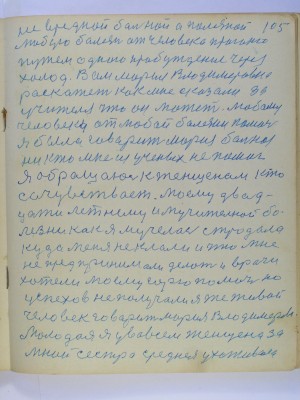 не вредной бапной а полезной 105
любую болезн от человека прогоню
путем одного пробуждение через
холод. Вам мария Владимеровна
раскажет как мне сказали до
учителя это он может. Любому
человеку от любой болезни помоч
Я была говарит мария бапкой
ни кто мне из ученых не помог
Я обращаюс к женщенам кто
сочувствает. моему двад-
цати летнему и мучителной бо-
лезни как я мучелас студовла
куда меня не клали и што мне
не предпринимали делат и врачи
хотели моему горю помоч но
успехов не получили я же живой
человек говарит мария Владимеров
молодая я у вавсем женщена за
мной сестра средняя ухаживала